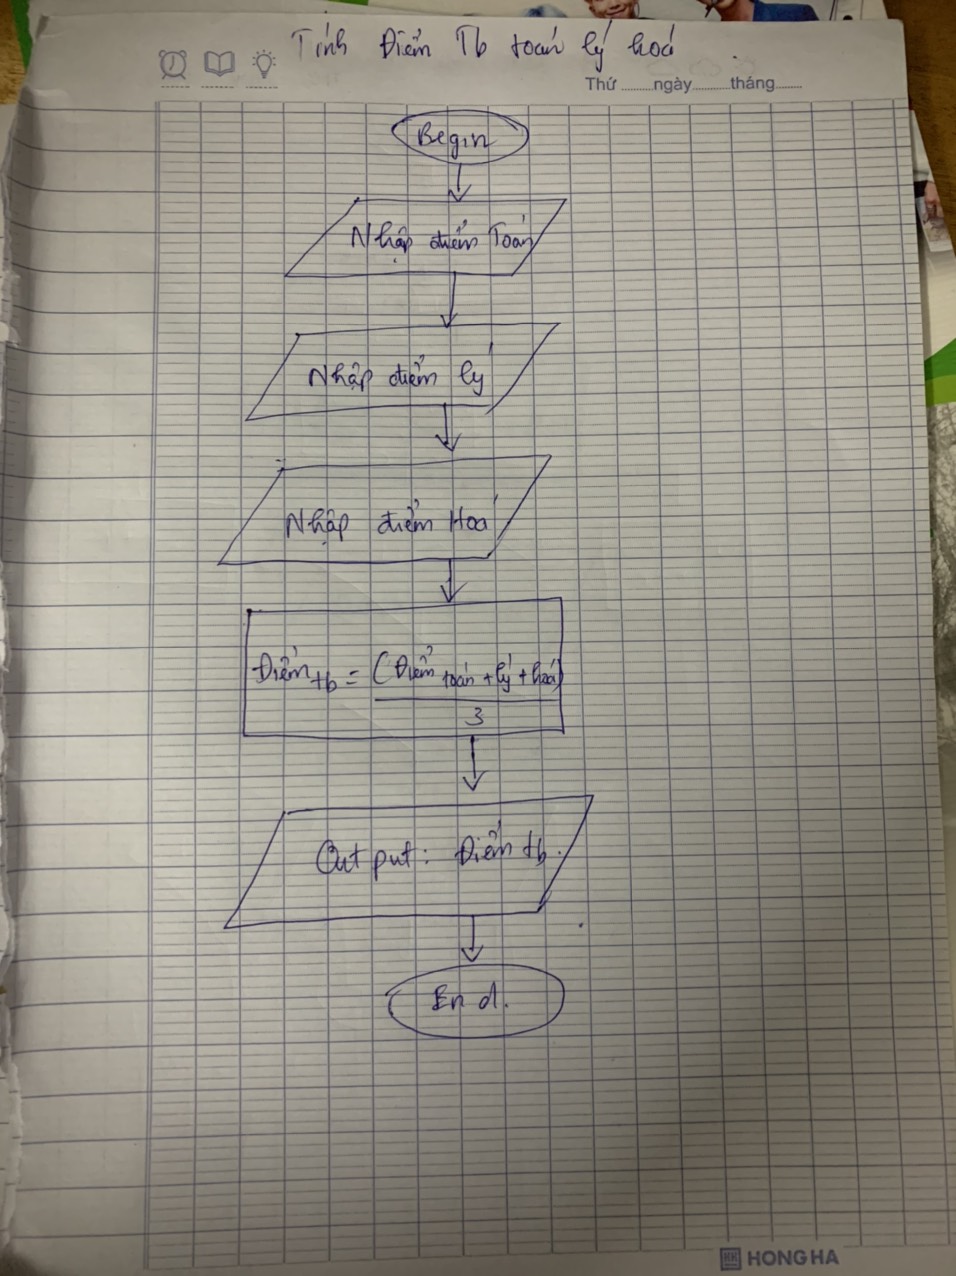 Tính Điểm Tb toán lý hoá
Thứ ........ngày..........tháng.......
Begin
Nhập điểm Toán
Nhập điểm lý
Nhập điểm Hoá
Điểm tb = (Điểm toán + lý + hoá)
3
Output: Điểm tb.
End.
HONG HA